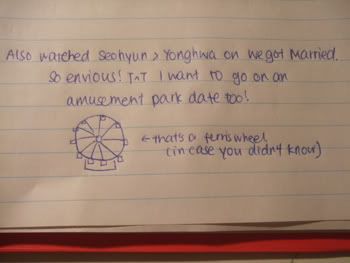 Also watched Seohyun & Yonghwa on we got Married.
So envious! TnT I want to go on an
amusement park date too!
← that's a ferris wheel
(in case you didn't know)